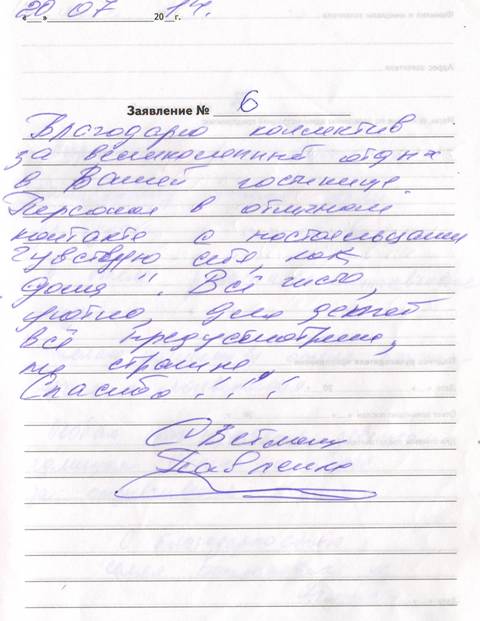 20 07 2014 г.
Заявление № 6
Благодарю коллектив
за великолепный отдых
в Вашей гостинице
Персонал в отличном
контакте с постояльцами
Чувствую себя, как
дома". Всё чисто,
уютно, для детей
всё предусмотрено,
на
Спасибо!!!!
Светлана
Павленко